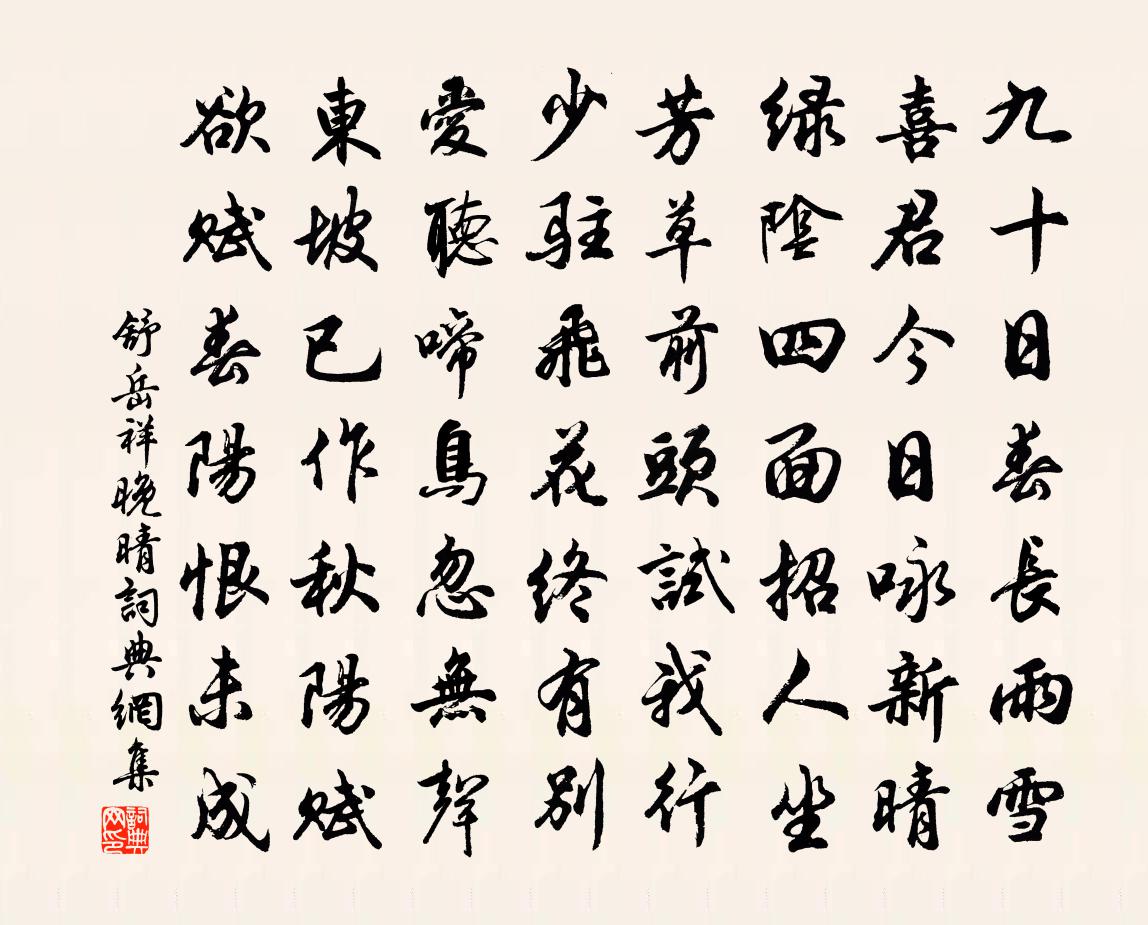 九十日春長雨雪
喜君今日咏新晴
緑陰四面招人坐
芳草前頭試我行
少駐飛花終有别
愛聽啼鳥忽無聲
東坡已作秋陽賦
欲賦春陽恨未成
舒岳祥晚晴詞典網集
詞典網印